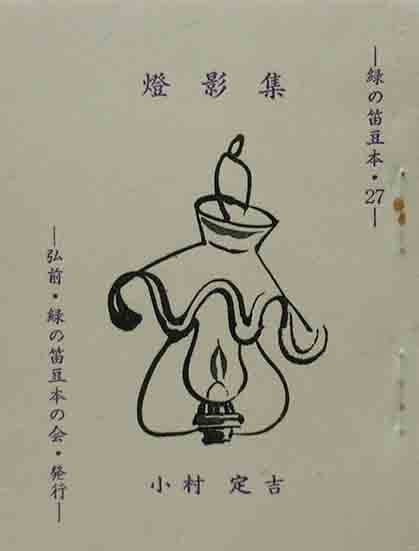 ―緑の笛豆本・27―
燈影集
小村定吉
―弘前・緑の笛豆本の会・発行―